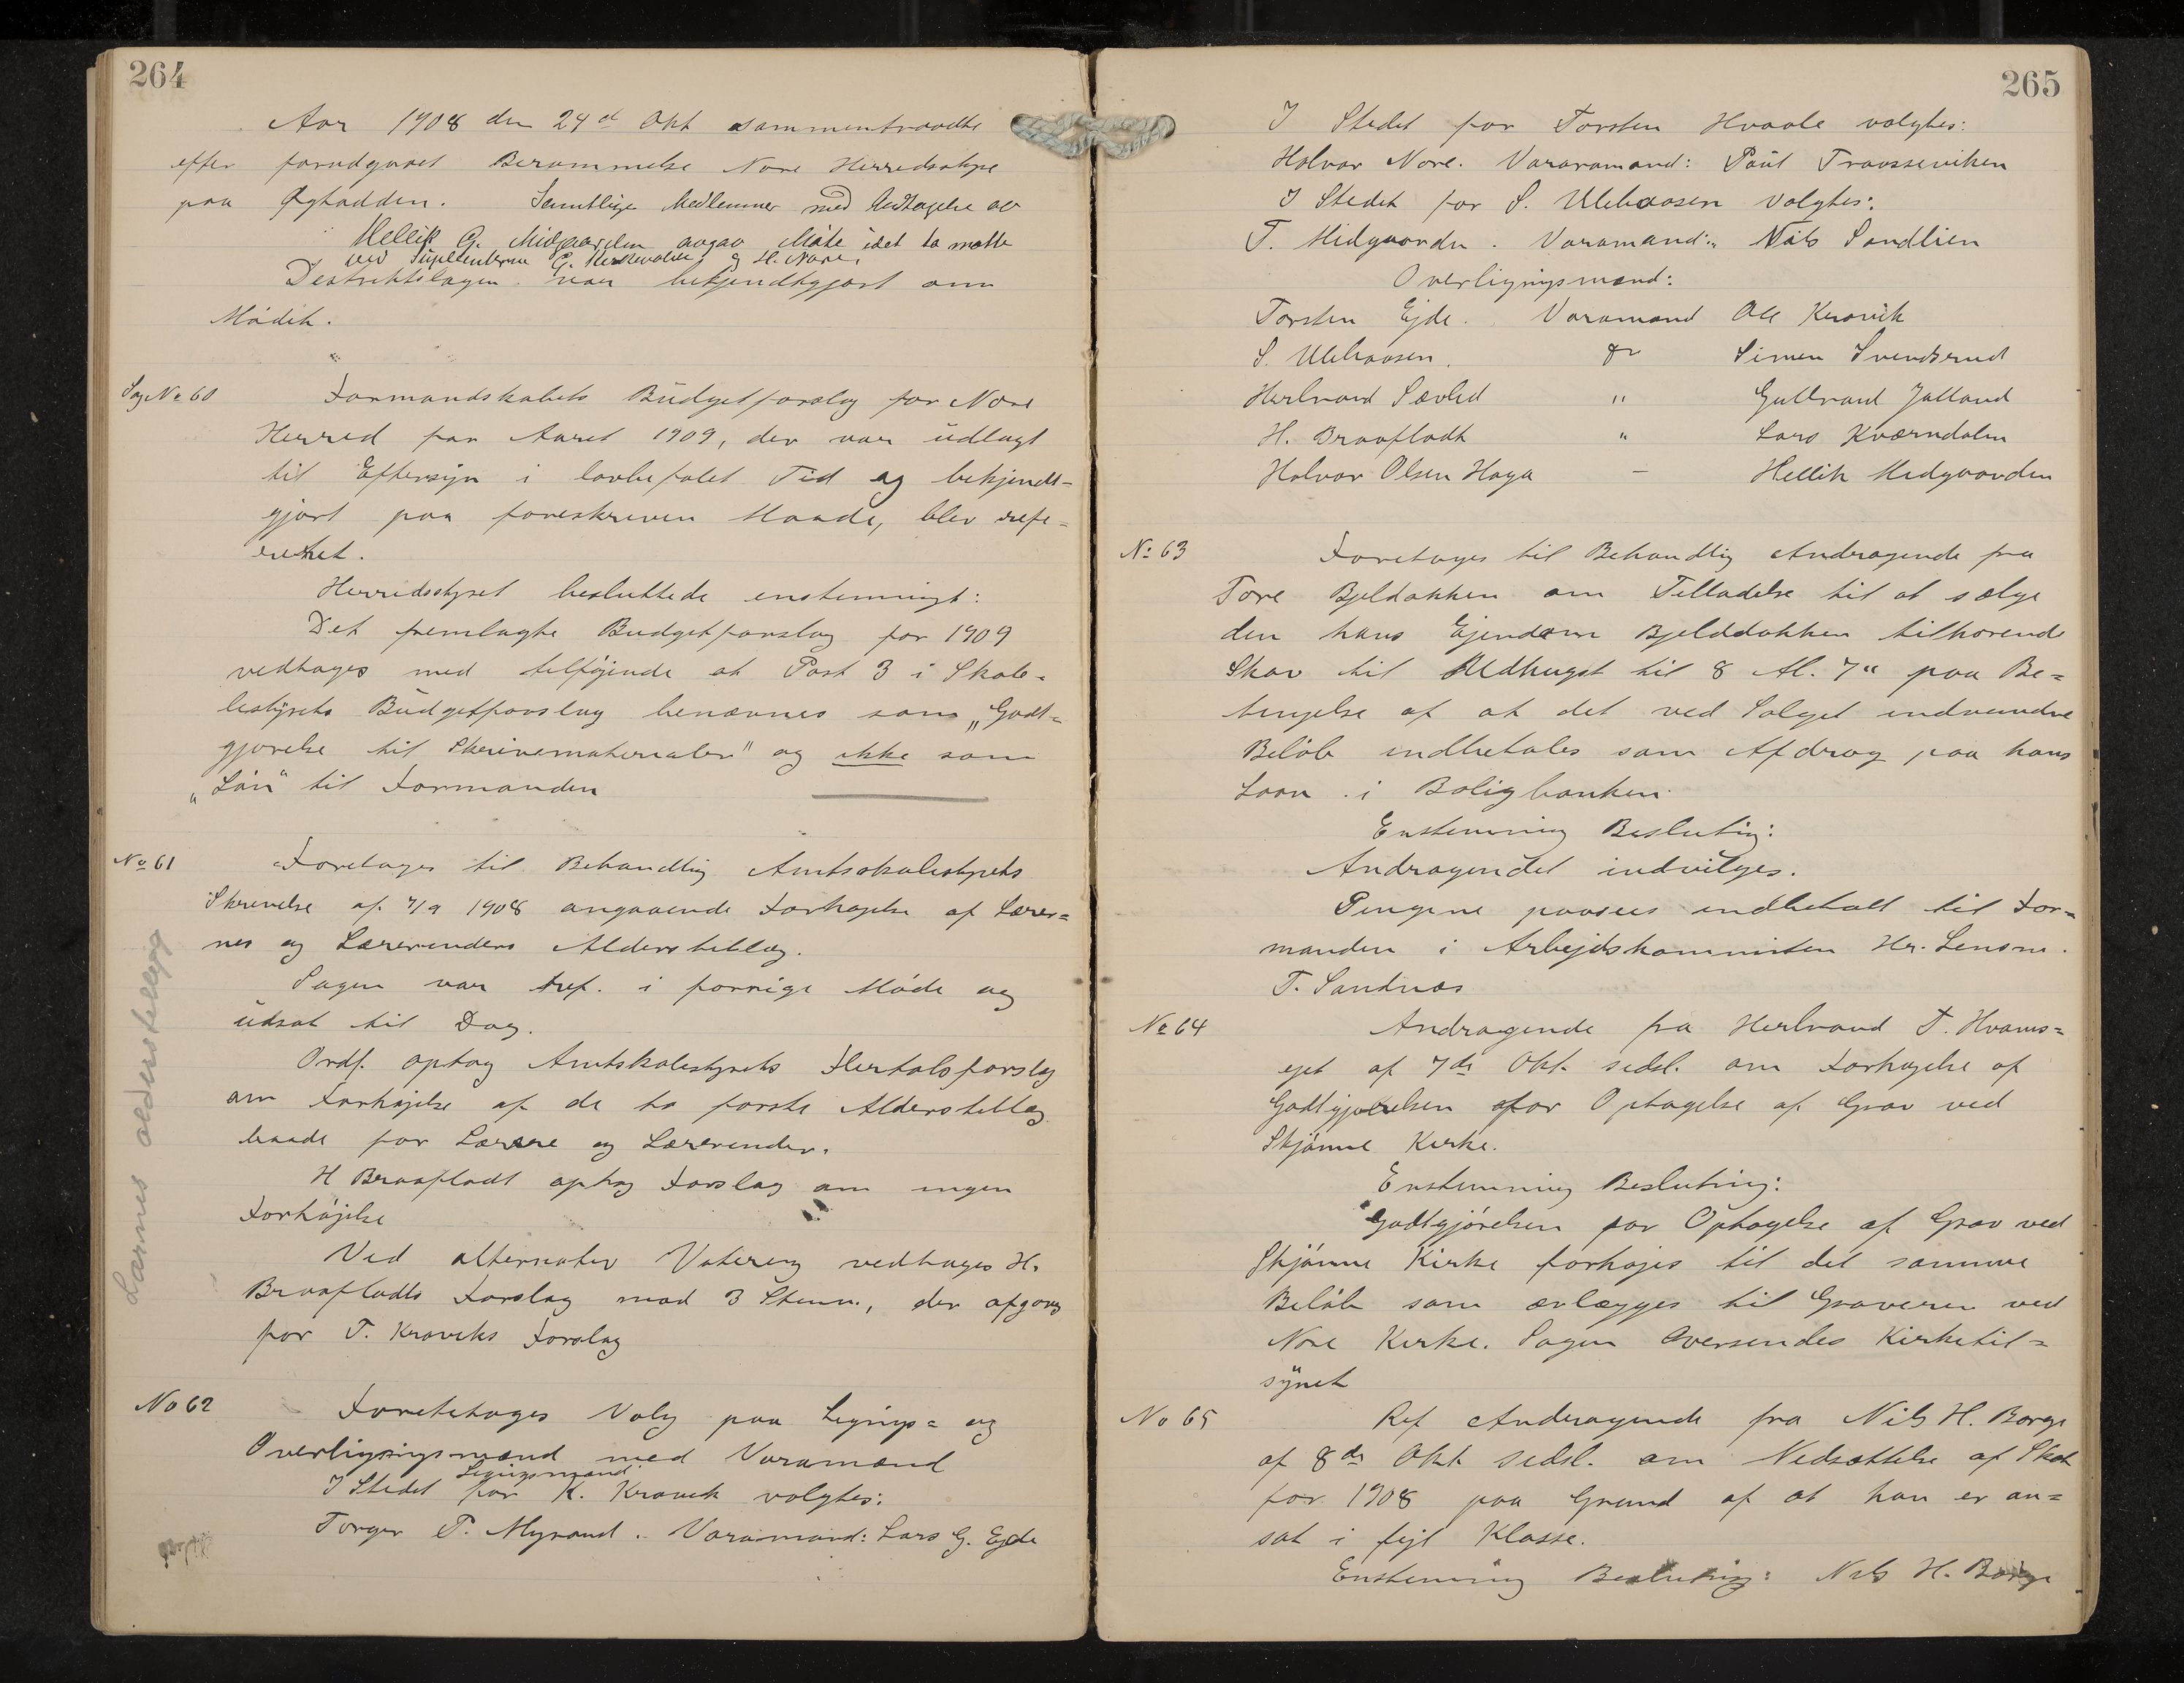 264
Aar 1908 den 24de Okt sammentraadte
efter forudgaaet Berammelse Nore Herredsstyre
paa Øygtadden. Samtlige Medlemmer med Undtagelse av
Hellik G. Midgaarden avgav Møte idet to møtte
ved Suplenterne G. og H. Nore.
Destriktslægen var bekjendtgjort om
Mødet.
Sag No 60
Formandskabets Budgetforslag for Nore
Herred for Aaret 1909, der var udlagt
til Eftersyn i lovbefalet Tid og bekjendt=
gjort paa foreskreven Maade, blev refe=
reret.
Herredsstyret besluttede enstemmigt:
Det fremlagte Budgetforslag for 1909
vedtages med tilføiende at Post 3 i Skole=
lestyrets Budgetforslag benævnes som „Godt=
gjørelse til Skrivematerialer" og ikke som
„Løn" til Formanden
No 61
Foretages til Behandling Amtsskolestyrets
Skrivelse af 7/9 1908 angaaende Forhøjelse af Lærer=
nes og Lærerinders Alderstillæg.
Sagen var ref. i forrige Møde og
udsat til Dag.
Ordf. optog Amtskolestyrets Flertalsforslag
om Forhøjelse af de to første Alderstillæg
baade for Lærere og Lærerinder.
H Braafladt optog Forslag om ingen
Forhøjelse
Ved alternativ Votering vedtages H.
Braafladts Forslag mod 3 Stemm., der afgaves
for T. Kraviks Forslag
Lærernes alderstillegg
No 62
Foretages Valg paa Lignings= og
Overligningsmænd med Varamænd
Ligningsmænd
I Stedet for K. Kravik valgtes:
Torger T. Myrand. Varamand: Lars G. Ejde
265
I Stedet for Torsten Hvaale valgtes:
Halvor Nore. Vararamand: Paul Traasseviken
I Stedet for S. Ulehaasen valgtes:
T. Midgaarden. Varamand: Nils Sandlien
Overligningsmænd:
Torsten Ejde. Varamand Ole Kravik
S. Ulehaasen. do Simen Svendsrud
Herbrand Sævled " Gulbrand Jalland
H. Braafladt " Lars Kværndalen
Halvor Olsen Haga — Hellik Midgaarden
No 63
Foretages til Behandling Andragende fra
Tore Bjeldokken om Tilladelse til at sælge
den hans Ejendom Bjelddokken tilhørende
Skov til Udhugst til 8 Al. 7" paa Be=
tingelse af at det ved Salget indvundne
Beløb indbetales som Afdrag paa hans
Laan i Boligbanken.
Enstemmig Beslutning:
Andragendet indvilges.
Pengene paasees indbetalt til For=
manden i Arbejdskommisten Hr. Lensm.
T. Sandnæs
No 64
Andragende fra Herbrand T. Hvams=
ejet af 7de Okt. sidsl. om Forhøjelse af
Godtgjørelsen for Optagelse af Grav ved
Skjønne Kirke.
Enstemmig Beslutning:
Godtgjørelsen for Optagelse af Grav ved
Skjønne Kirke forhøjes til det samme
Beløb som ærlægges til Graveren ved
Nore Kirke. Sagen Oversendes Kirketil=
synet
No 65
Ref Andragende fra Nils H. Borge
af 8de Okt sidsl. om Nedsættelse af Skat
for 1908 paa Grund af at han er an=
sat i fejl Klasse.
Enstemmig Beslutning: Nils H. Borge